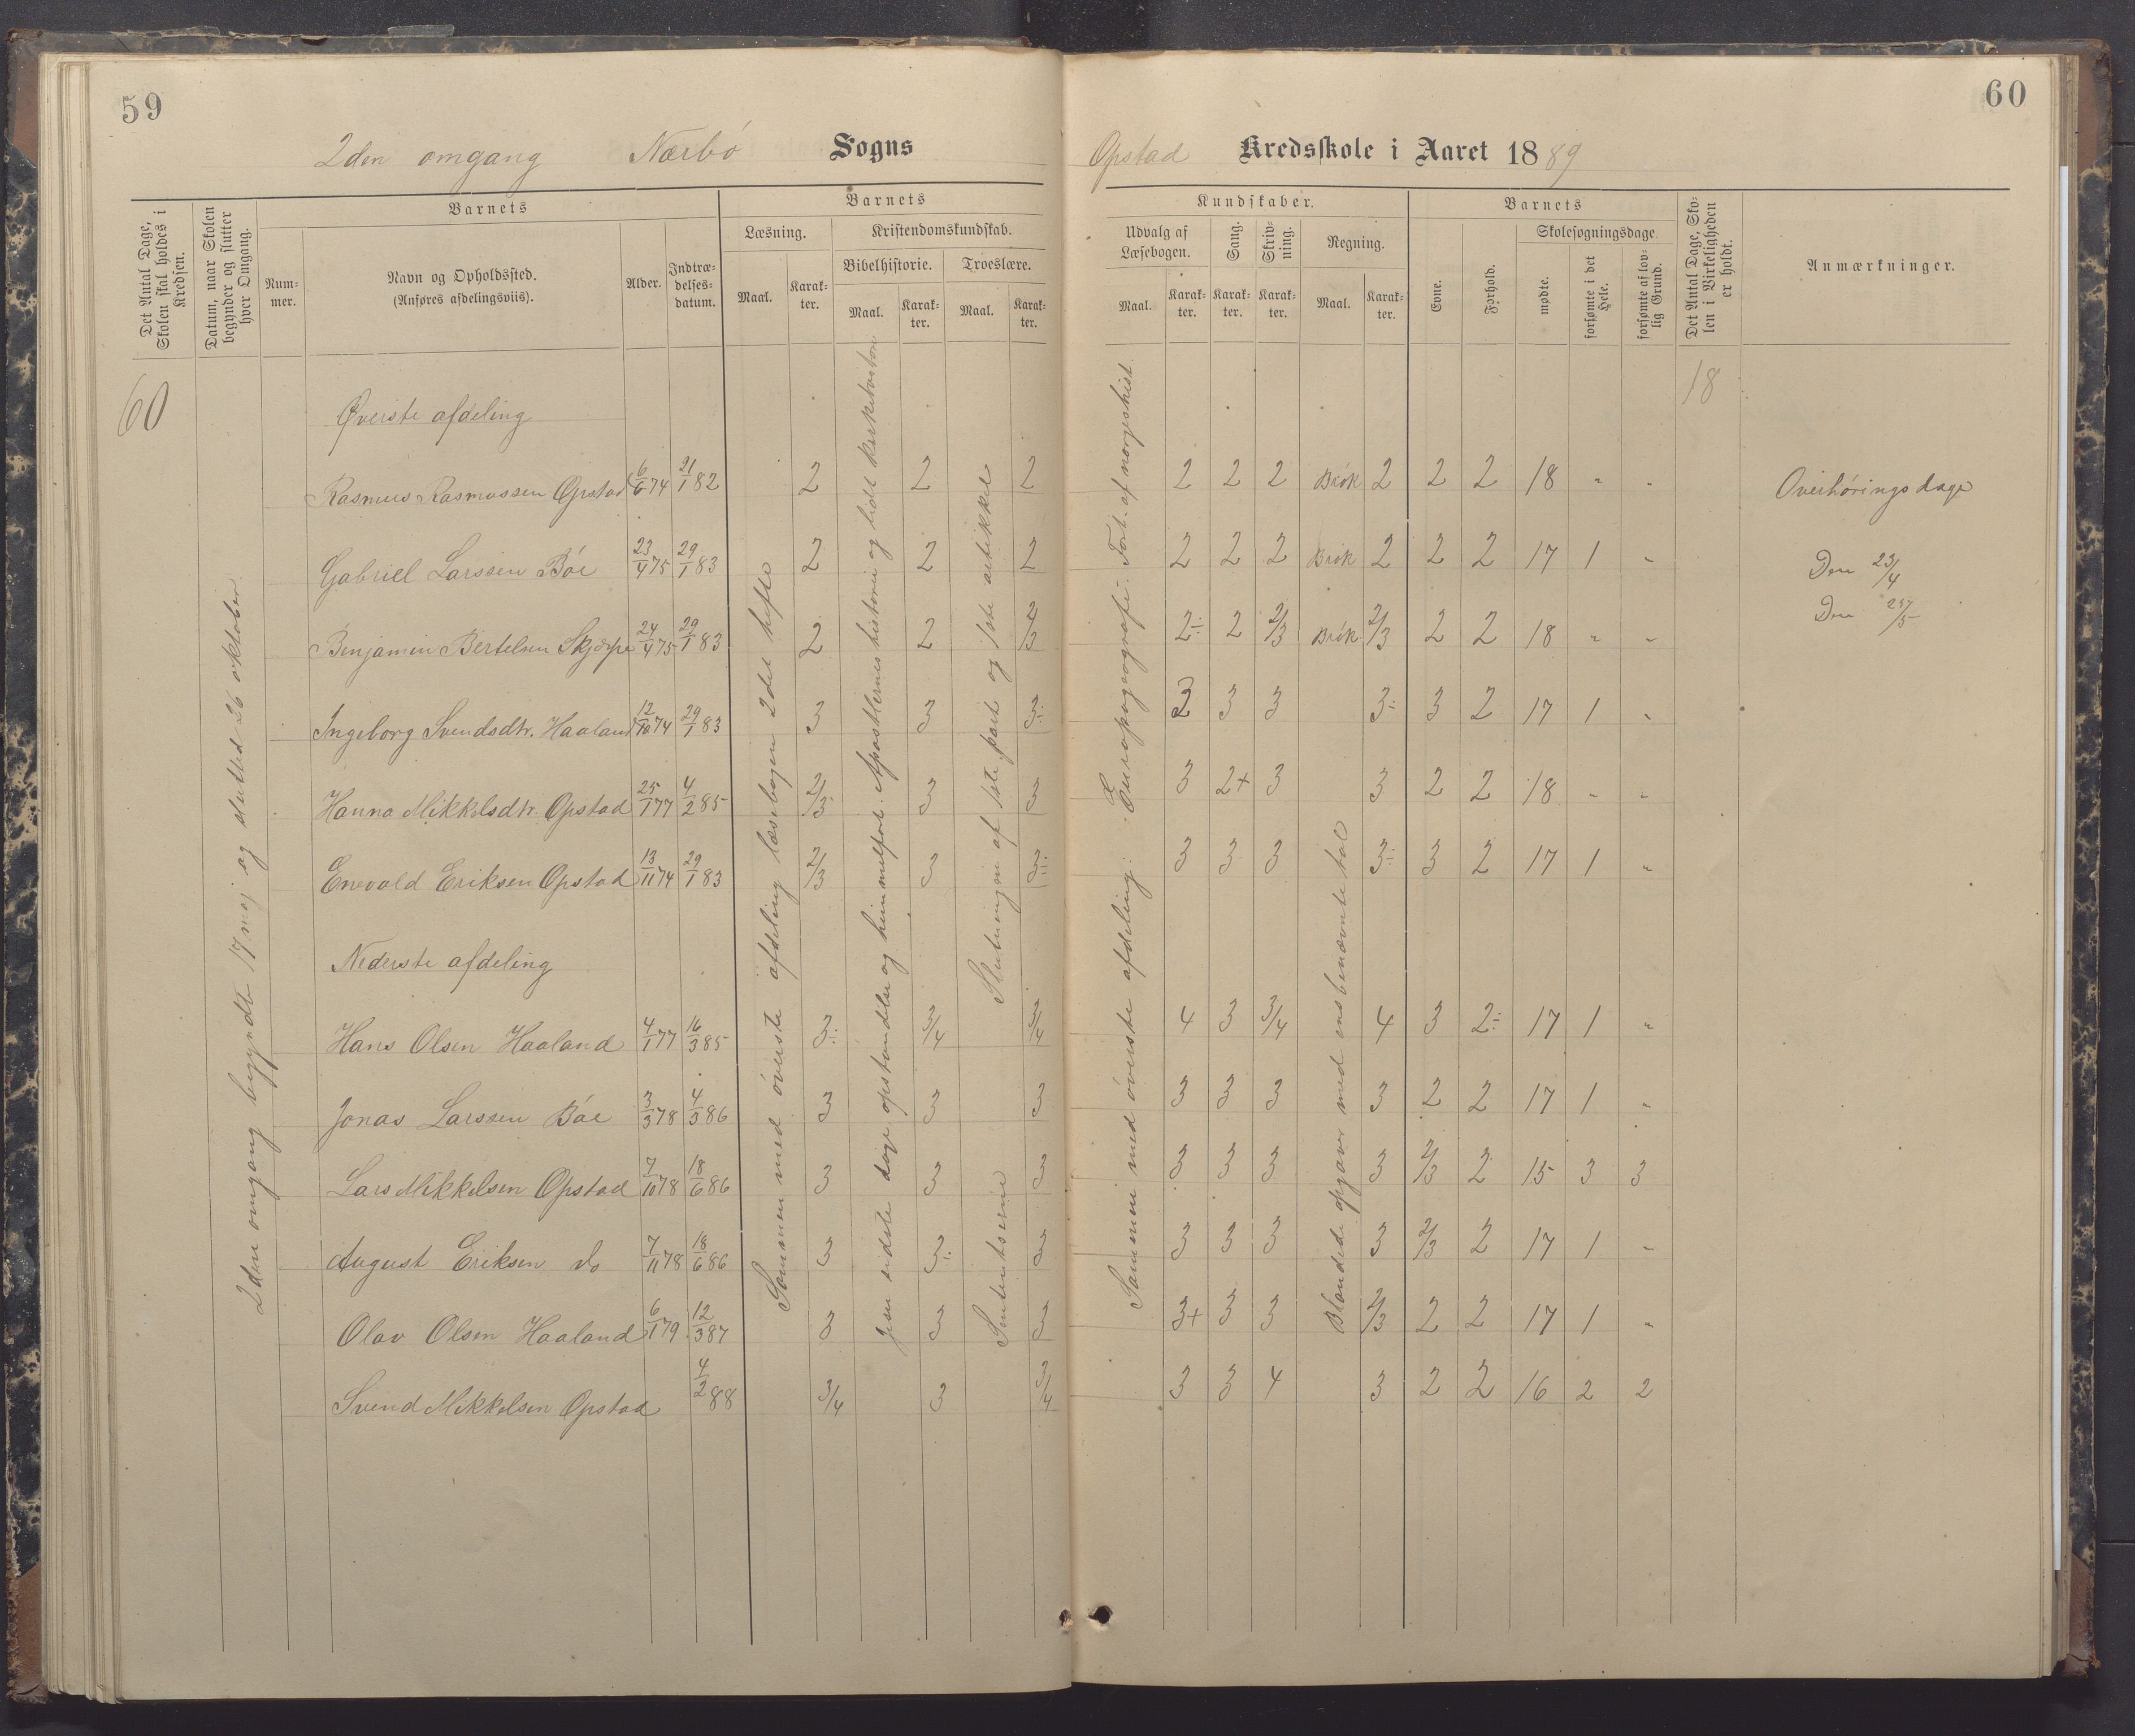 59
2den omgang Nærbö Sogns
Det Antal Dage, Skolen skal holdes i Kredsen.
Datum, naar Skolen begynder og slutter hver Omgang.
Barnets
Nummer.
Navn og Opholdssted.
(Anføres afdelingsviis).
Alder.
Indtrædelsesdatum.
Barnets
Læsning.
Maal.
Karakter.
Kristendomskundskab.
Bibelhistorie.
Maal.
Karakter.
Troeslære.
Maal.
Karakter.
60
2den omgang begyndt 17 mej og sluttet 26 oktober
Øverste afdeling
Rasmus Rasmussen Opstad 6/6 74 21/1 82 2 2 2
Gabriel Larssen Böe 23/4 75 29/1 83 2 2 2
Benjamin Bertelsen Skjærpe 24/4 75 29/1 83 2 2 2/3
Ingeborg Svendsdtr. Haaland 12/10 74 29/1 83 3 3 3÷
Hanna Mikkelsdtr. Opstad 25/1 77 4/2 85 2/3 3 3
Enevold Eriksen Opstad 13/11 74 29/1 83 2/3 3 3÷
Nederste afdeling
Hans Olsen Haaland 4/1 77 16/3 85 3÷ 3/4 3/4
Jonas Larssen Böe 3/3 78 4/3 86 3 3 3
Lars Mikkelsen Opstad 7/10 78 18/6 86 3 3 3
August Eriksen do 7/11 78 18/6 86 3 3÷ 3
Olav Olsen Haaland 6/1 79 12/3 87 3 3 3
Svend Mikkelsen Opstad 4/2 88 3/4 3 3/4
Sammen med överste afdeling læsebogen 2det hefte
Jesu sidste dage opstandelse og himmelfart. Apostlernes historie og lidt kirkehistorie
Sentensterne
Slutningen af 1ste part og 1ste artikkel
60
Opstad Kredsskole i Aaret 1889
Kundskaber.
Udvalg af Læsebogen.
Maal.
Karakter.
Sang.
Karakter.
Skrivning.
Karakter.
Regning.
Maal.
Karakter.
Barnets
Evne.
Forhold.
Skolesøgningsdage.
mødte.
forsømte i det Hele.
forsømte af lovlig Grund.
Det Antal Dage, Skolen i Virkeligheden er holdt.
Anmærkninger.
18
2 2 2 Brök 2 2 2 18 " "
2 2 2 Brök 2 2 2 17 1 "
2÷ 2 2/3 Brök 2/3 2 2 18 " "
3 3 3 3÷ 3 2 17 1 "
3 2+ 3 3 2 2 18 " "
3 3 3 3÷ 3 2 17 1 "
4 3 3/4 4 3 2÷ 17 1 "
3 3 3 3 2 2 17 1 "
3 3 3 3 2/3 2 15 3 3
3 3 3 3 2/3 2 17 1 "
3+ 3 3 2/3 2 2 17 1 "
3 3 4 3 2 2 16 2 2
Sammen med överste afdeling.
Europageografi. Fort. af norgeshist.
Blandede opgaver med ens benævnte tal
Overhörings dage
Den 23/4
Den